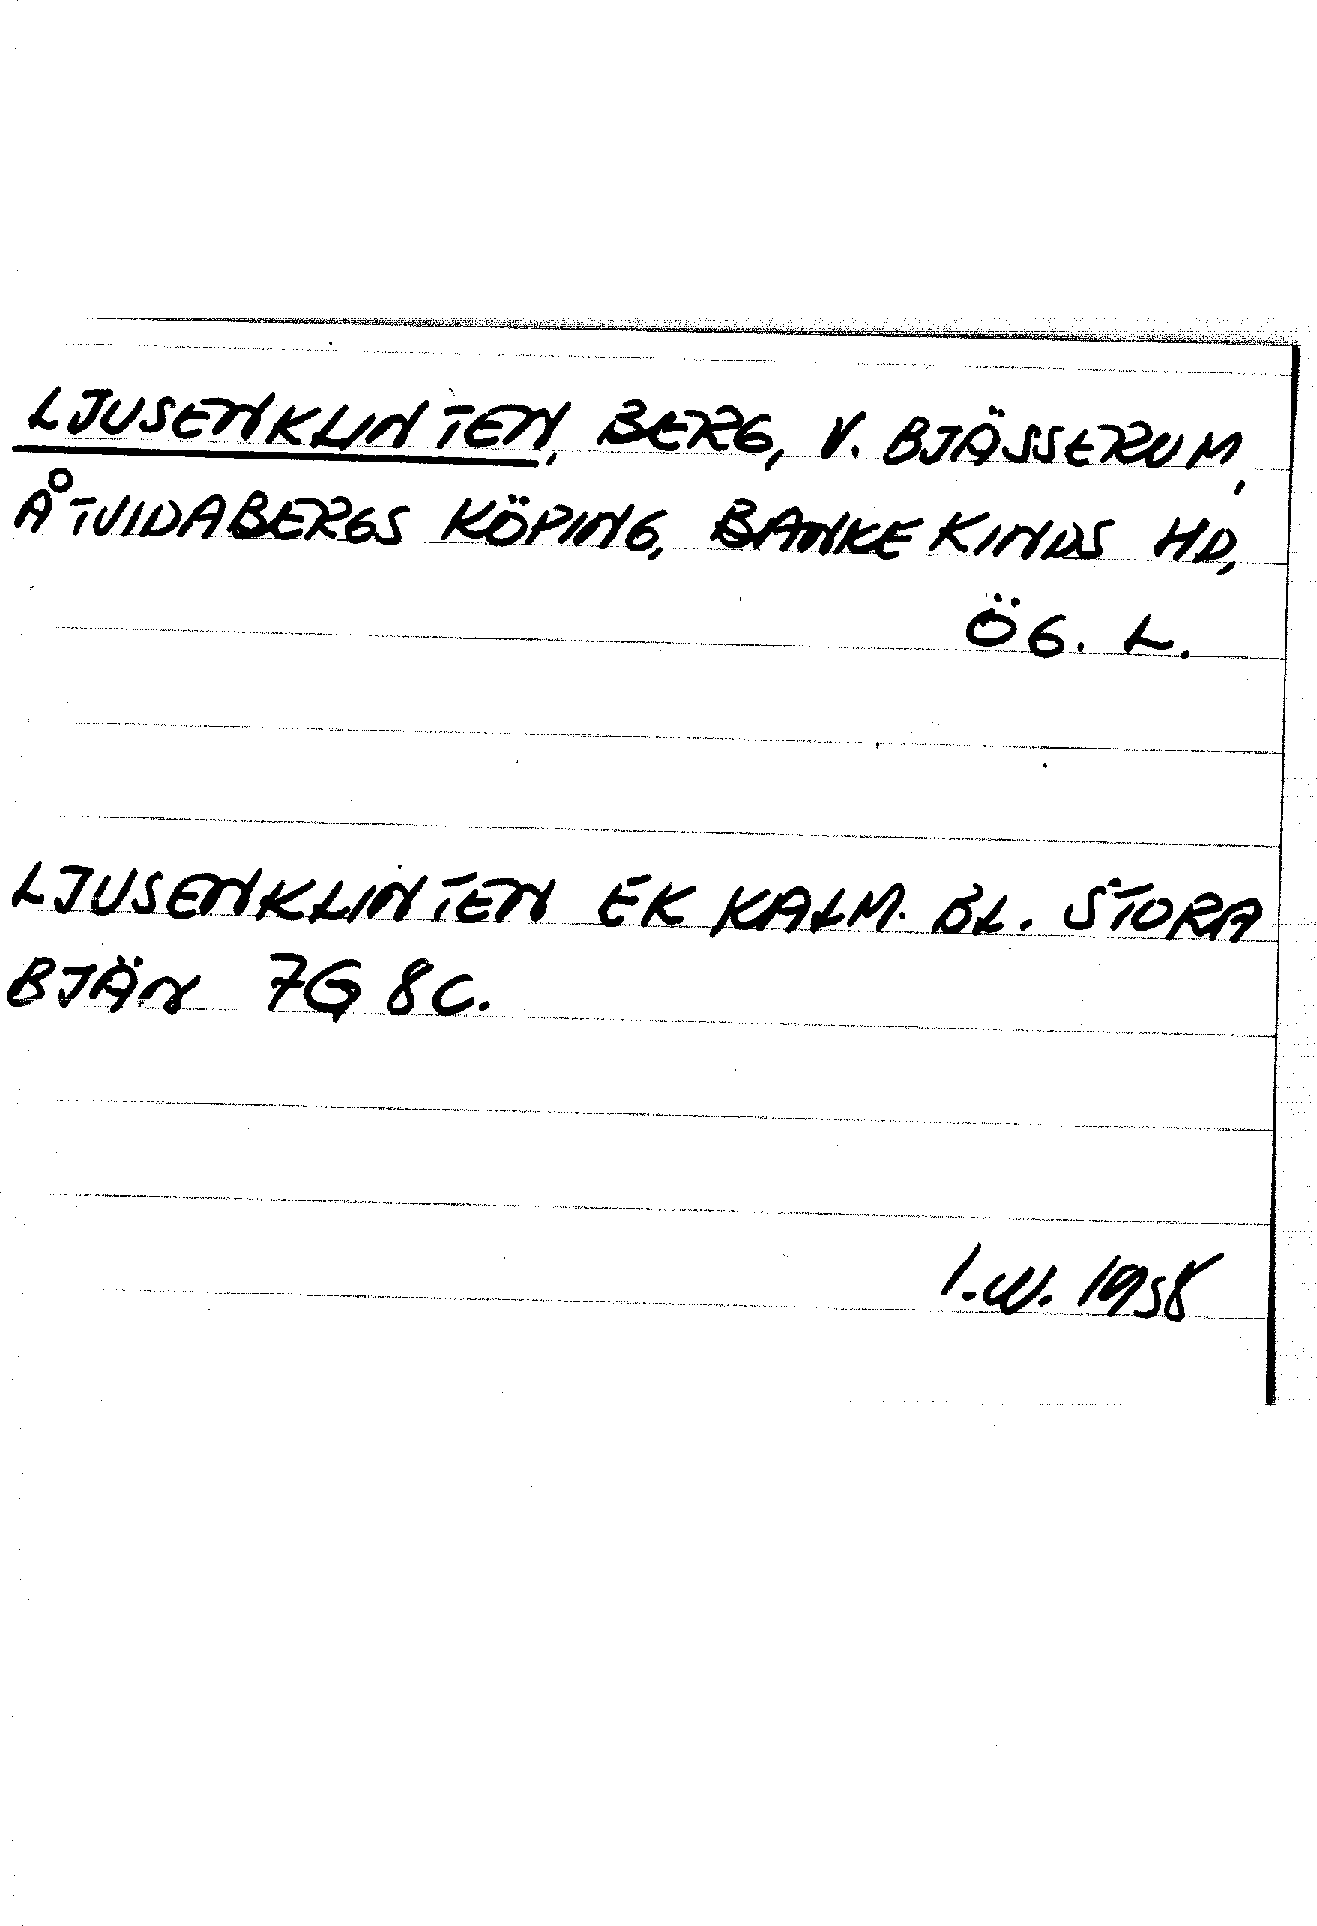 LJUSENKLINTEN, BERG, V. BJÄSSERUM,
ÅTVIDABERGS KÖPING, BANKEKINDS HD,
ÖG. L.
LJUSENKLINTEN EK KALM. BL. STORA
BJÄN 7G 8C.
I.W. 1958